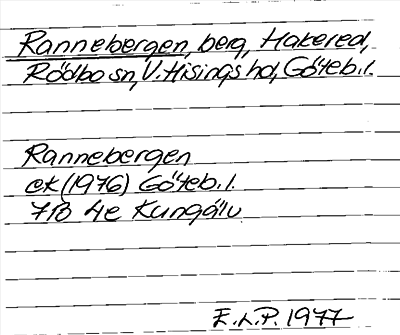 Rannebergen, berg, Hakered,
Rödbo sn, V. Hisings hd, Göteb.l.
Rannebergen
ek (1976) Göteb.l.
7B 4e Kungälv
E.L.P. 1977